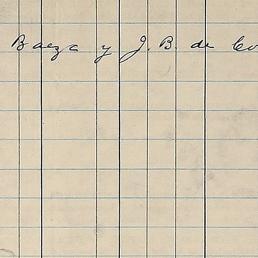 Baeza y J. B. de Co